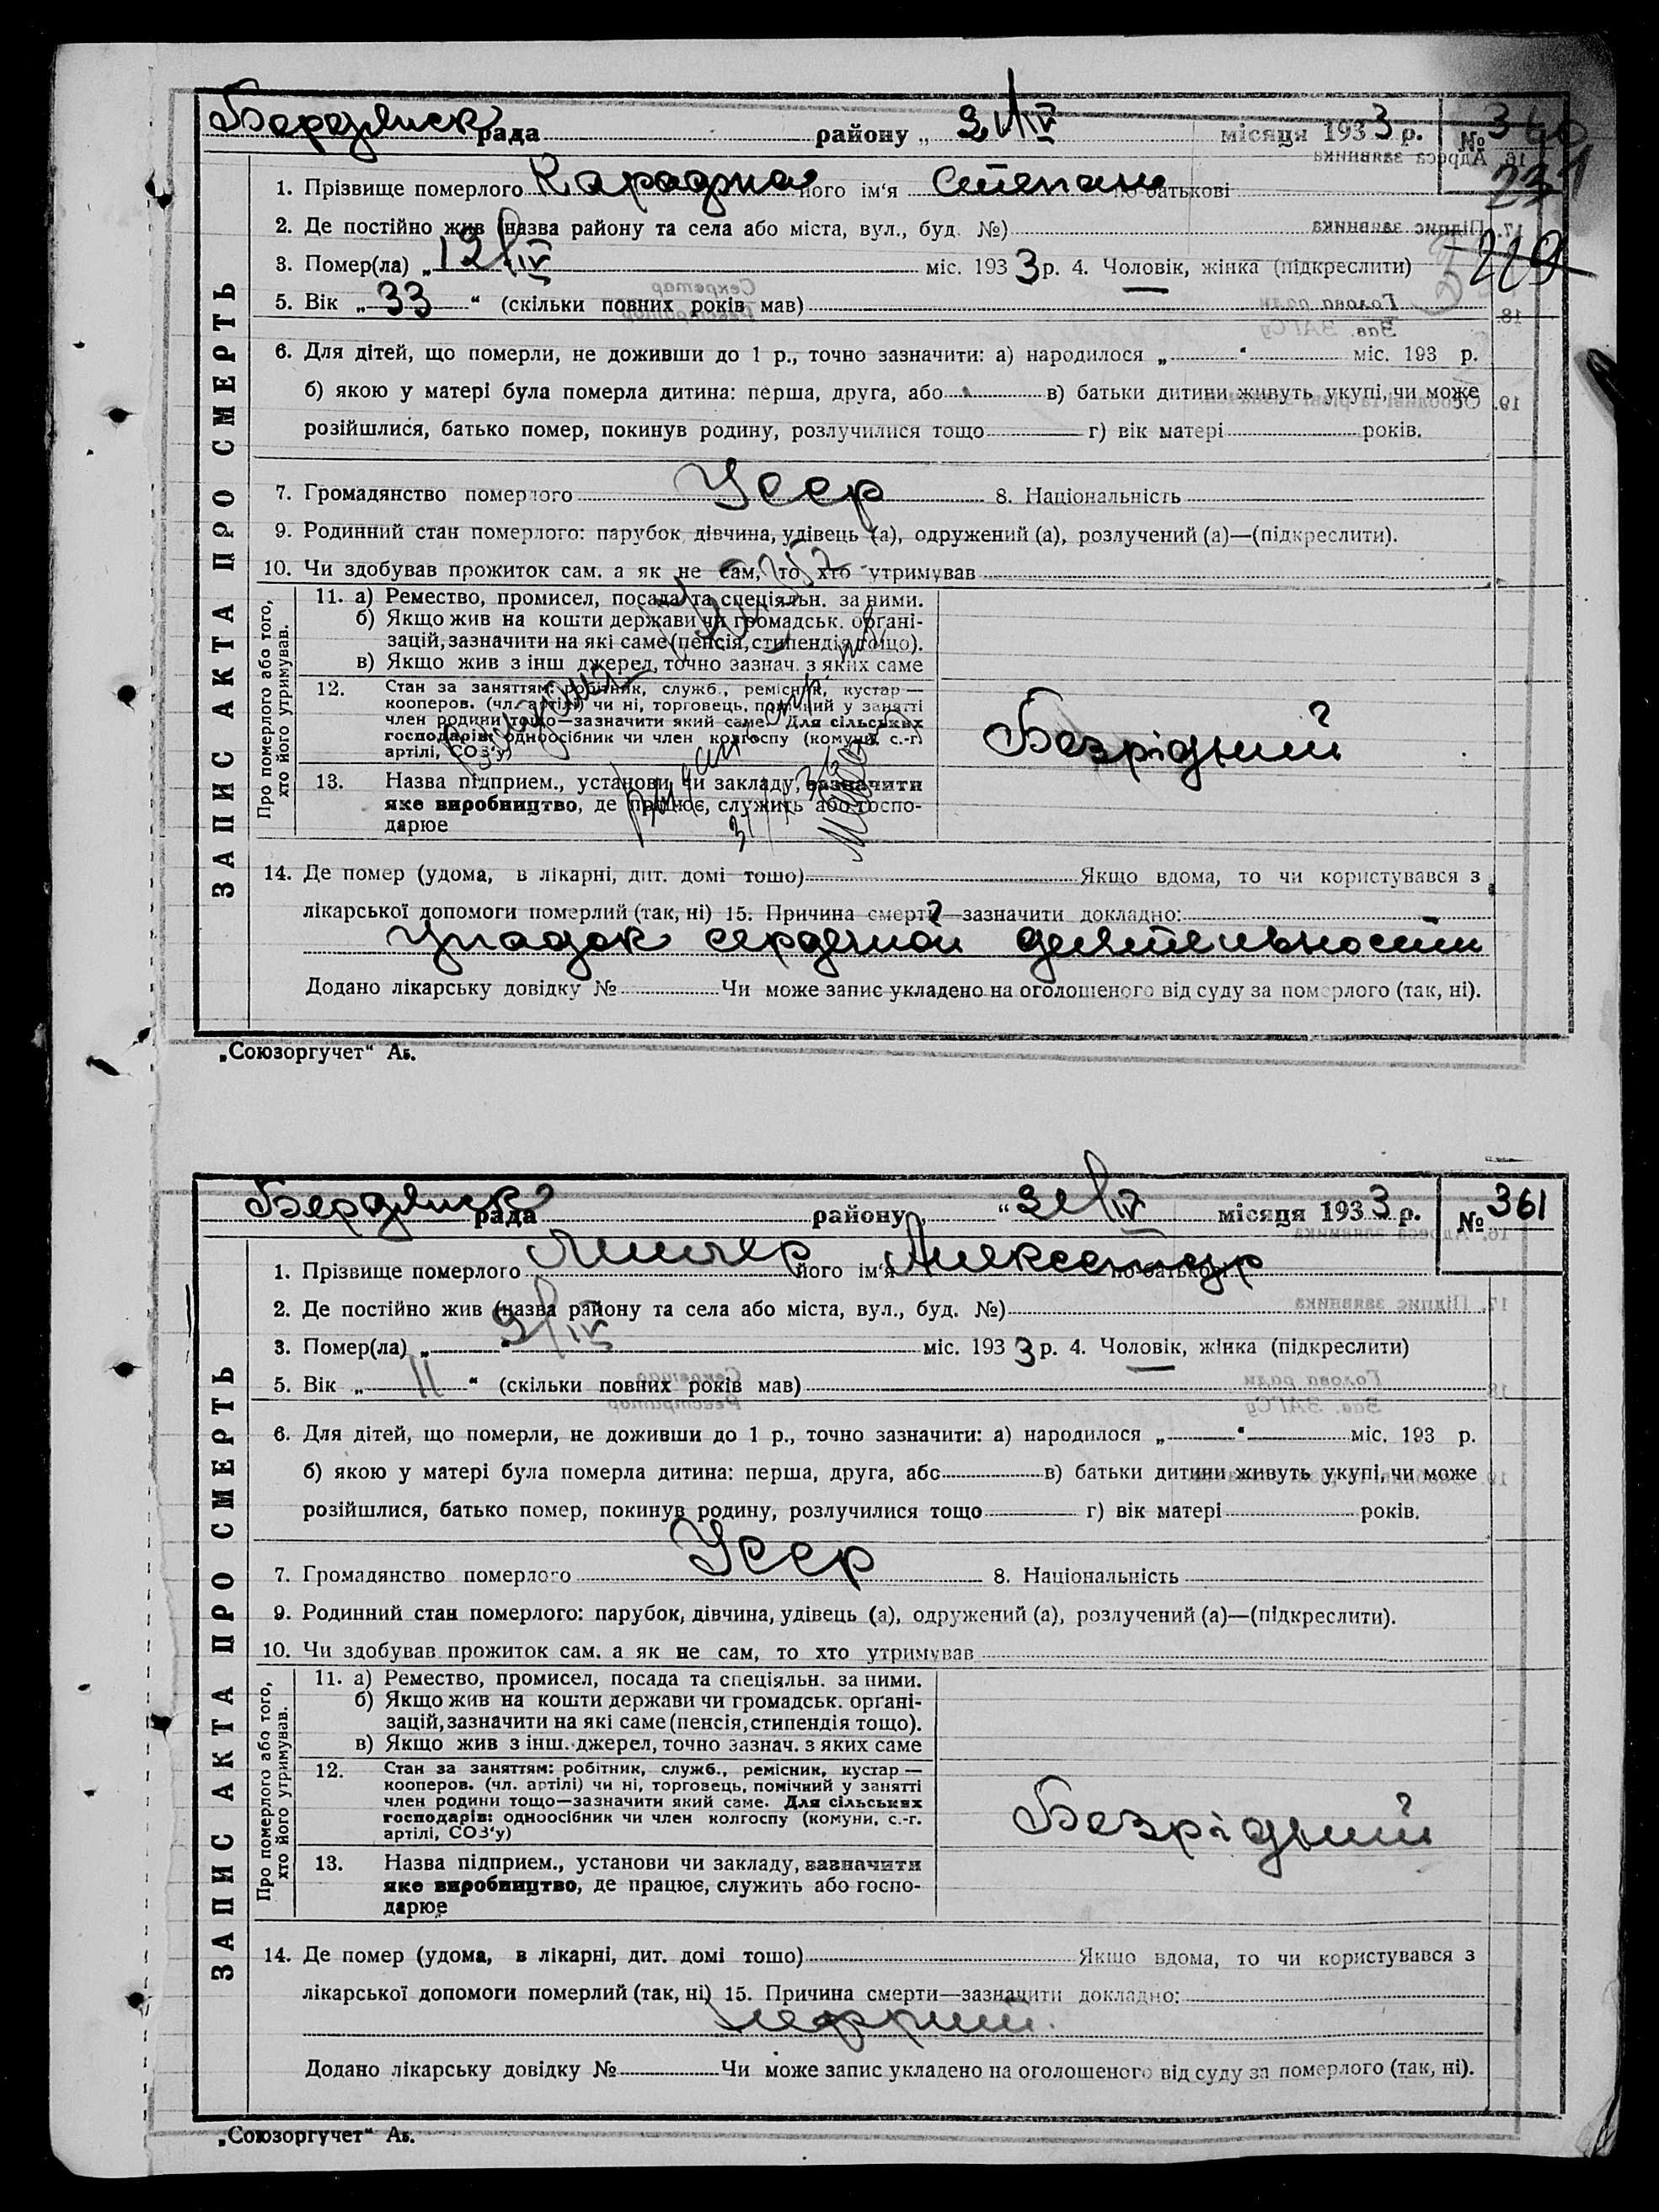 Бердянск рада району „ 21/IV місяця 1933 р. № 360
231
1. Прізвище померлого Караджа його ім'я Степан по батькові
2. Де постійно жив (назва району та села або міста, вул., буд. №)
219
3. Помер(ла) „ 12/IV міс. 1933 р. 4. Чоловік, жінка (підкреслити)
5. Вік „ 33 “ (скільки повних років мав)
6. Для дітей, що померли, не доживши до 1 р., точно зазначити: а) народилося „ “ міс. 193 р.
б) якою у матері була померла дитина: перша, друга, або в) батьки дитини живуть укупі, чи може
розійшлися, батько помер, покинув родину, розлучилися тощо г) вік матері років.
7. Громадянство померлого Усср 8. Національність
9. Родинний стан померлого: парубок, дівчина, удівець (а), одружений (а), розлучений (а)—(підкреслити).
10. Чи здобував прожиток сам. а як не сам, то хто утримував
ЗАПИС АКТА ПРО СМЕРТЬ
Про померлого або того,
хто його утримував.
11. а) Ремество, промисел, посада та спеціяльн. за ними.
б) Якщо жив на кошти держави чи громадськ. орґані-
зацій, зазначити на які саме (пенсія, стипендія тощо).
в) Якщо жив з інш джерел, точно зазнач. з яких саме
12. Стан за заняттям: робітник, служб., ремісник, кустар—
кооперов. (чл. артілі) чи ні, торговець, помічний у занятті
член родини тощо—зазначити який саме. Для сільських
господарів: одноосібник чи член колгоспу (комуни, с.-г.
артілі, СОЗ'у)
Безрідний
13. Назва підприєм., установи чи закладу, зазначити
яке виробництво, де працює, служить або госпо-
дарює
14. Де помер (удома, в лікарні, дит. домі тощо) Якщо вдома, то чи користувався з
лікарської допомоги померлий (так, ні) 15. Причина смерти—зазначити докладно:
Упадок сердечной деятельности
Додано лікарську довідку № Чи може запис укладено на оголошеного від суду за померлого (так, ні).
„Союзоргучет“ Аб.
Бердянск рада району „ “ 21/IV місяця 1933 р. № 361
1. Прізвище померлого його ім'я Александр по батькові
2. Де постійно жив (назва району та села або міста, вул., буд. №)
3. Помер(ла) „ “ 9/IV міс. 1933 р. 4. Чоловік, жінка (підкреслити)
5. Вік „ 11 “ (скільки повних років мав)
6. Для дітей, що померли, не доживши до 1 р., точно зазначити: а) народилося „ “ міс. 193 р.
б) якою у матері була померла дитина: перша, друга, або в) батьки дитини живуть укупі, чи може
розійшлися, батько помер, покинув родину, розлучилися тощо г) вік матері років.
7. Громадянство померлого Усср 8. Національність
9. Родинний стан померлого: парубок, дівчина, удівець (а), одружений (а), розлучений (а)—(підкреслити).
10. Чи здобував прожиток сам. а як не сам, то хто утримував
ЗАПИС АКТА ПРО СМЕРТЬ
Про померлого або того,
хто його утримував.
11. а) Ремество, промисел, посада та спеціяльн. за ними.
б) Якщо жив на кошти держави чи громадськ. орґані-
зацій, зазначити на які саме (пенсія, стипендія тощо).
в) Якщо жив з інш. джерел, точно зазнач. з яких саме
12. Стан за заняттям: робітник, служб., ремісник, кустар—
кооперов. (чл. артілі) чи ні, торговець, помічний у занятті
член родини тощо—зазначити який саме. Для сільських
господарів: одноосібник чи член колгоспу (комуни, с.-г.
артілі, СОЗ'у)
Безрідний
13. Назва підприєм., установи чи закладу, зазначити
яке виробництво, де працює, служить або госпо-
дарює
14. Де помер (удома, в лікарні, дит. домі тощо) Якщо вдома, то чи користувався з
лікарської допомоги померлий (так, ні) 15. Причина смерти—зазначити докладно:
Нефрит.
Додано лікарську довідку № Чи може запис укладено на оголошеного від суду за померлого (так, ні).
„Союзоргучет“ Аб.